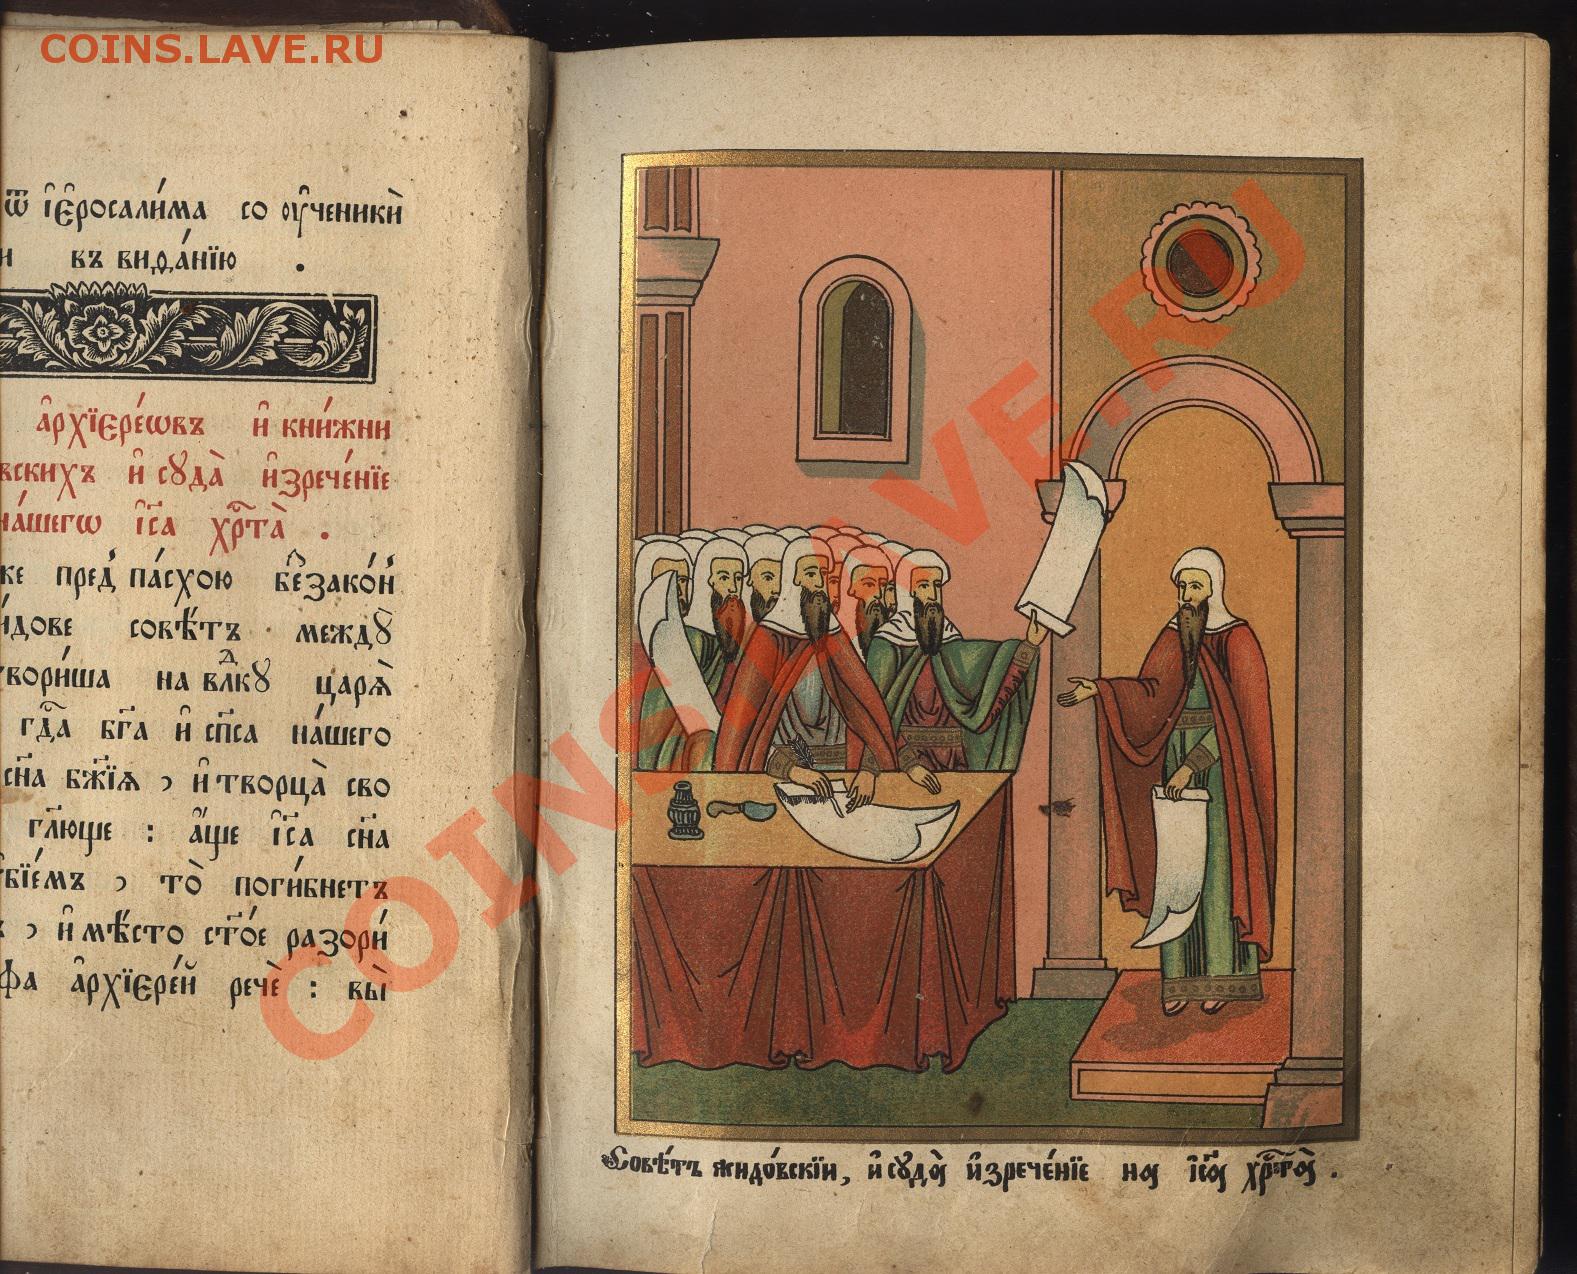 COINS.LAVE.RU
ѿ і҆ерⷭ҇осали́ма со ᲂу҆ченикѝ
въ виѳа́нїю .
а҆рхїере́ѡвъ и҆ кни́жни
вскихъ и҆ сꙋда̀ и҆зрече́нїе
на́шегѡ і҆с҃а хрⷭ҇та̀ .
же пред̾ па́схою беззако́н
и́дове совѣ́тъ междꙋ̀
твори́ша на влⷣкꙋ царѧ̀
гдⷭ҇а бг҃а и҆ сп҃са на́шего
сн҃а бж҃їѧ , и҆ творца̀ сво
гл҃юще : а҆́ще і҆с҃а сн҃а
бїе́мъ , то̀ поги́бнетъ
ъ , и҆ мѣ́сто ст҃о́е разори́
фа а҆рхїере́й речѐ : вы̀
Совѣ́тъ жидо́вскїи, и҆ сꙋда̀ и҆зрече́нїе на і҆с҃а хрⷭ҇та̀ .
COINS.LAVE.RU